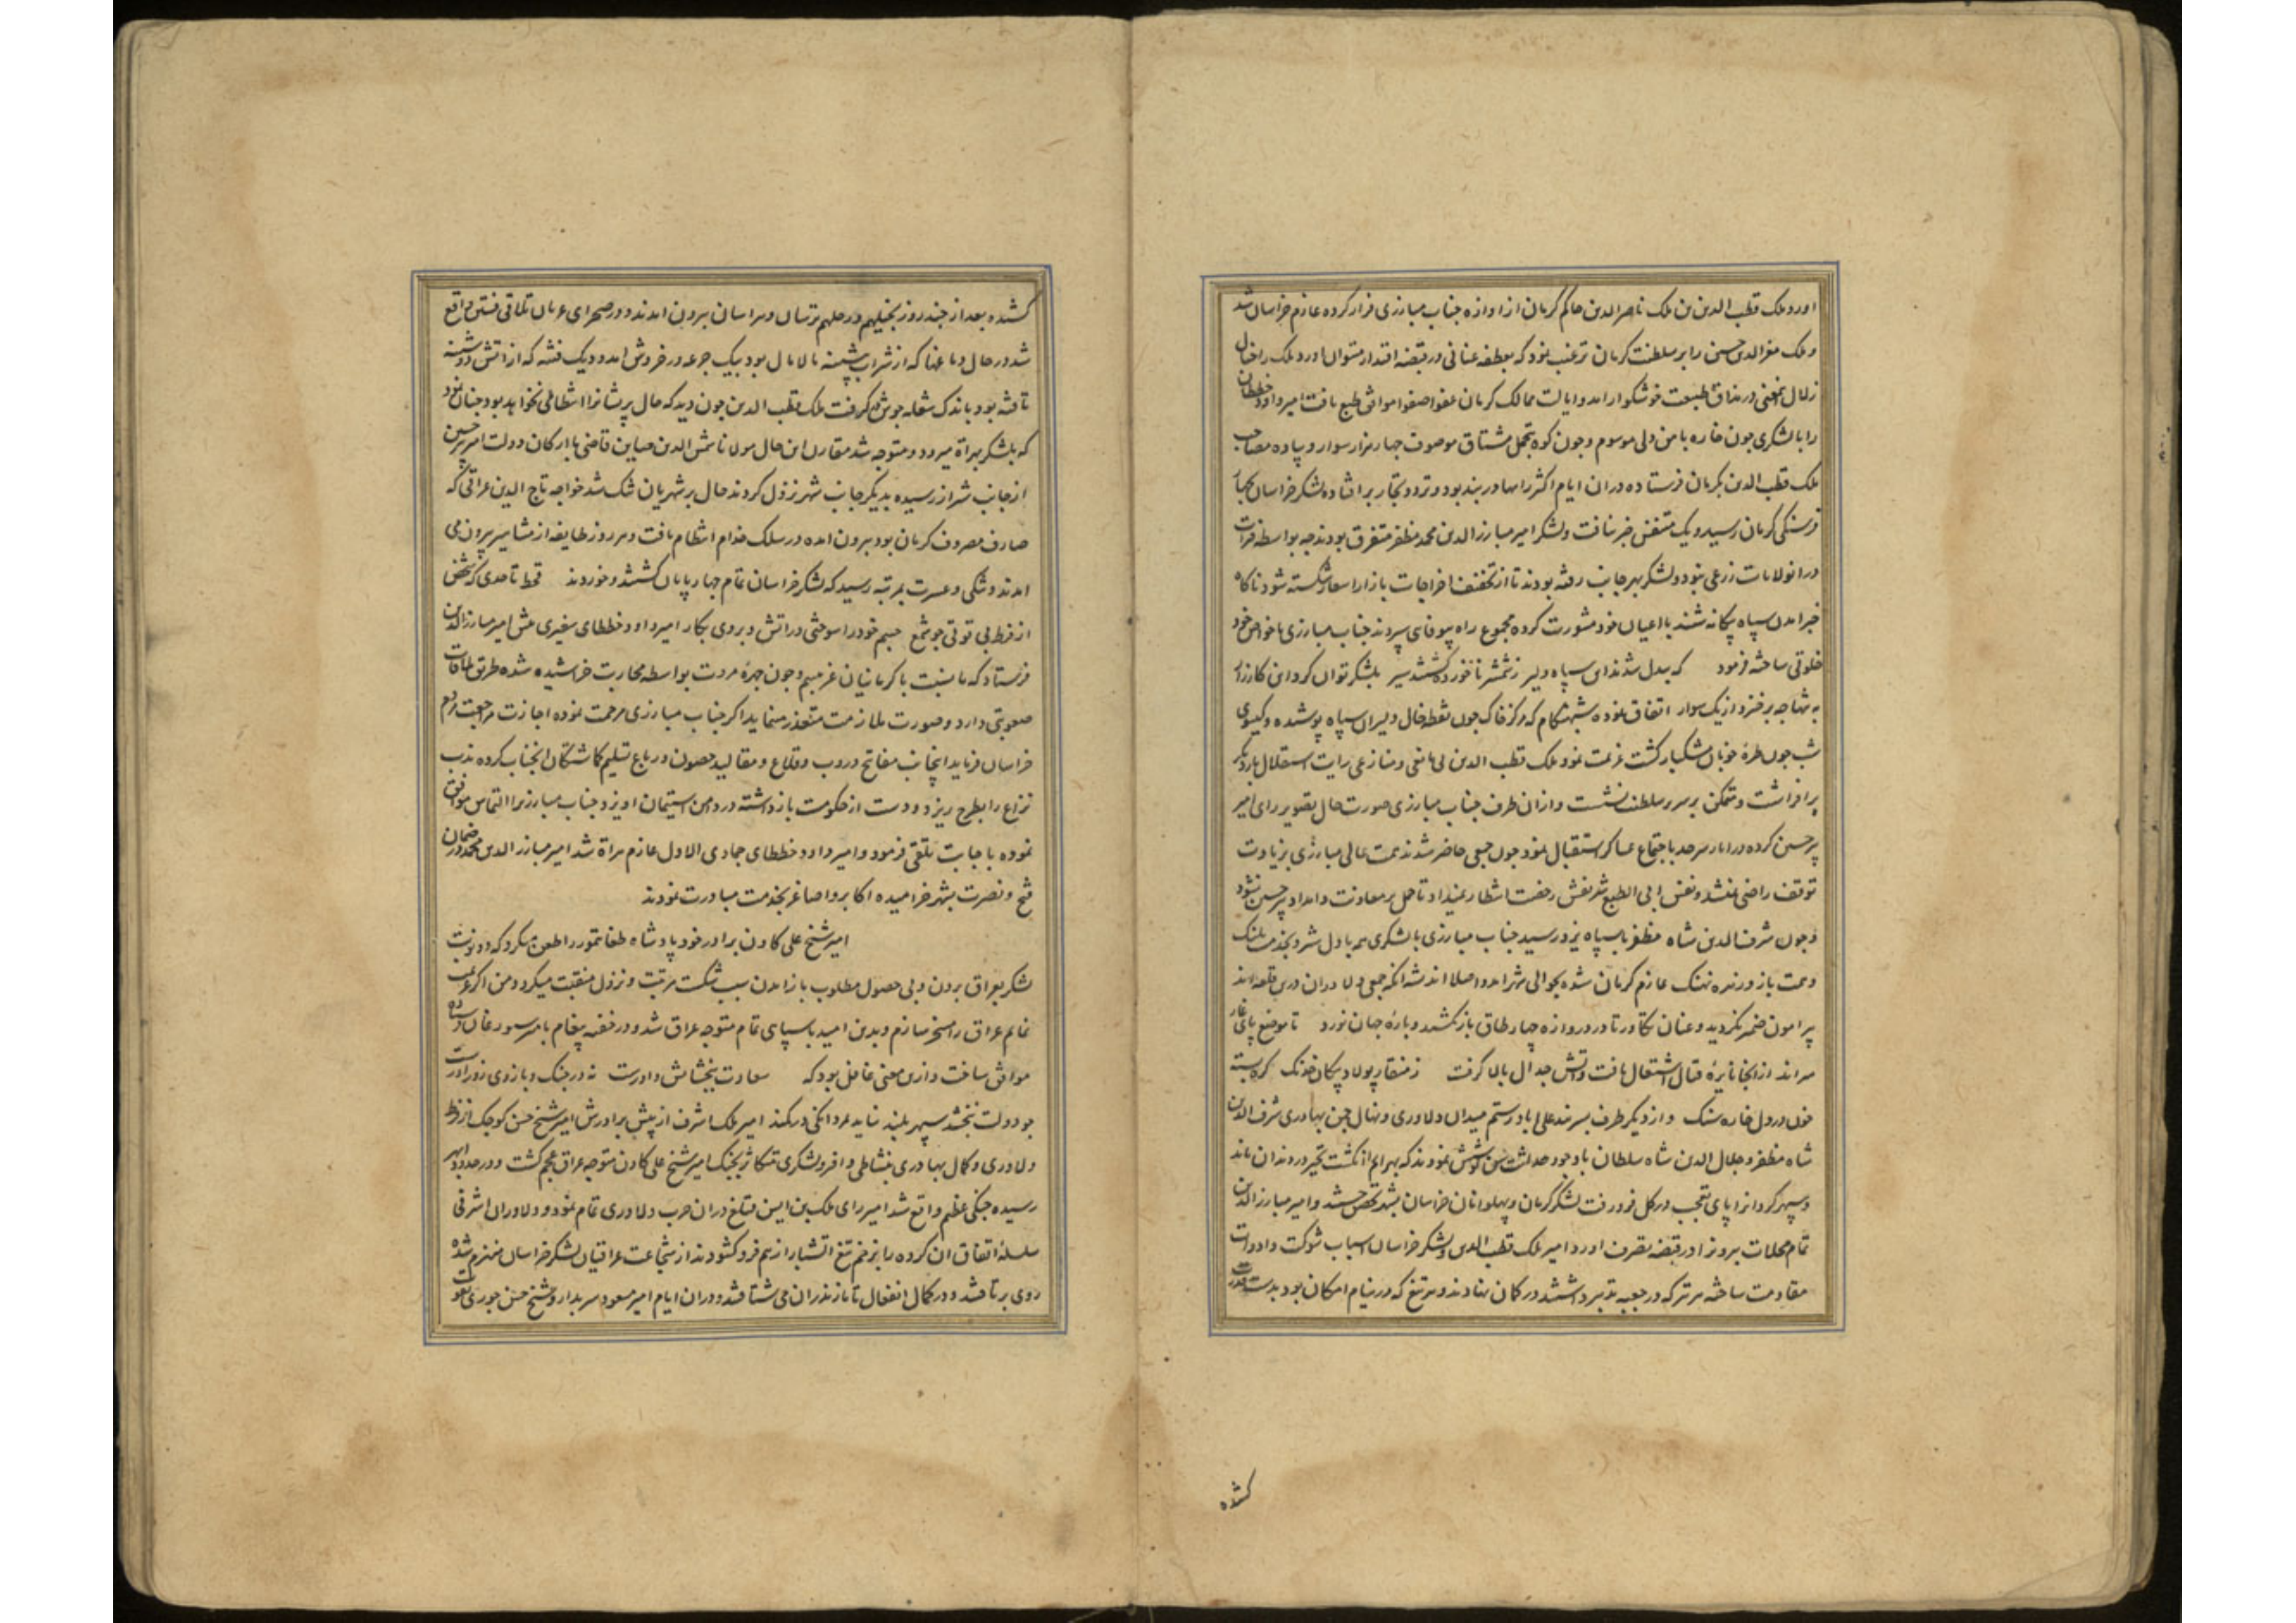 اورد ملک قطب الدین بن ملک ناصر الدین حاکم کرمان از اوازه جناب مبارزی فرار کرده عازم خراسان شد
و ملک معز الدین حسین را بر سلطنت کرمان ترغیب نمود که بعطفه عنانی در قبضه اقتدار میتوان اورد ملک را خیال
زلال این معنی در مذاق طبیعت خوشکوار امد و ایالت ممالک کرمان عفوا صفوا موافق طبع یافت امیر داود خططای
را با لشکری چون خاره با من دلی موسوم و چون کوه بتحمل مشتاق موصوف چهار هزار سوار و پیاده مصاحب
ملک قطب الدین بکرمان فرستاد و دران ایام اکثر راهها در بند بود و تردد تجار بر افتاده لشکر خراسان بچهار
فرسنکی کرمان رسید و یک متنفس خبر نیافت و لشکر امیر مبارز الدین محمد مظفر متفرق بودند چه بواسطه فترات
در ان ولایات زرعی نبود و لشکر بهر جانب رفته بودند تا از تخفیف اخراجات بازار اسعار شکسته شود ناکاه
خبر امدن سپاه بیکانه شنید با اعیان خود مشورت کرده مجموع راه بیوفایی سپردند جناب مبارزی با خواص خود
خلوتی ساخته فرمود که بیدل شدند این سپاه دلیر ز شمشیر ناخورده کشتند سیر بلشکر توان کرد این کارزار
به تنها چه بر خیزد از یک سوار اتفاق نموده شبهنکام که مرکز خاک چون نقطه خال دلبران سیاه پوشیده و کیسوی
شب چون طره خوبان مشکبار کشت عزیمت نمود ملک قطب الدین بی مانعی و منازعی رایت استقلال بار دیکر
بر افراشت و متمکن بر سریر سلطنت نشست و از ان طرف جناب مبارزی صورت حال بتصویر رای امیر
پیر حسین کرده در انار سرحد باجتماع عساکر استقبال نمود چون جمعی حاضر شدند همت عالی مبارزی بزیادت
توقف راضی نمیشد و نفس ابی الطبع شریفش رخصت انتظار نمیداد تا حمل بر معاونت و امداد پیر حسین نشود
و چون شرف الدین شاه مظفر با سپاه یزد رسید جناب مبارزی با لشکری همه با دل شیر و بخدمت پلنک
و همت باز و زنده نهنک عازم کرمان شده بحوالی شهر امد و اصلا اندیشه انکه جمعی دلاوران درین قلعه اند
پیرامون ضمیر نکردید و عنان تکاور تا در دروازه چهار طاق باز نکشید و باره جهان نورد تا موضع پای غار
میراند از انجا نایره قتال اشتعال یافت و اتش جدال بالا کرفت ز منقار پولاد پیکان خدنک کره بسته
خون در دل خاره سنک و از دیکر طرف بسر بند علی اباد رستم میدان دلاوری و نهال چمن بهادری شرف الدین
شاه مظفر و جلال الدین شاه سلطان با وجود حداثت سن کوششی نمودند که بهرام انکشت تحیر در دندان ماند
و سپهر کردانرا پای تعجب در کل فرو رفت لشکر کرمان و پهلوانان خراسان بشهر تحصن جستند و امیر مبارز الدین
تمام محلات بیرون را در قبضه تصرف اورد و امیر ملک قطب الدین و لشکر خراسان اسباب شوکت و ادوات
مقاومت ساخته هر تیر که در جعبه تدبیر داشتند در کمان نهادند و هر تیغ که در نیام امکان بود بدست قدرت
کشیده
کشیده بعد از چند روز بخیلهم و رجلهم ترسان و هراسان بیرون امدند و در صحرای عریان تلاقی فئتین واقع
شد در حال دماغها که از شراب شبینه مالامال بود بیک جرعه در خروش امد و دیک فتنه که از اتش دوشینه
تافته بود باندک شعله جوش کرفت ملک قطب الدین چون دید که حال پریشانرا انتظامی نخواهد بود چنان نمود
که بلشکر بهراة میرود و متوجه شد مقارن این حال مولانا شمس الدین صاین قاضی با ارکان دولت امیر پیر حسین
از جانب شیراز رسیده بدیکر جانب شهر نزول کردند حال بر شهریان تنک شد خواجه تاج الدین عراقی که
صارف مصروف کرمان بود بیرون امده در سلک خدام انتظام یافت و هر روز طایفه از مشاهیر بیرون می
امدند و تنکی و عسرت بمرتبه رسید که لشکر خراسان تمام چهارپایان کشتند و خوردند قحط تا حدی که شخص
از فرط بی قوتی چو شمع جسم خود را سوختی در اتش و بر روی بکار امیر داود خططای سفیری پیش امیر مبارز الدین
فرستاد که ما نسبت با کرمانیان غریبیم و چون چهره مروت بواسطه محاربت خراشیده شده طریق ملاقات
صعوبتی دارد و صورت ملازمت متعذر مینماید اکر جناب مبارزی مرحمت نموده اجازت مراجعت دهم
خراسان فرماید اینجانب مفاتیح دروب و قلاع و مقالید حصون و رباع تسلیم کماشتکان انجناب کرده مذهب
نزاع را بطرح ریزد و دست از حکومت باز داشته در دامن استیمان اویزد جناب مبارزیرا التماس موافق
نموده باجابت تلقی فرمود و امیر داود خططای جمادی الاول عازم هراة شد امیر مبارز الدین محمد در ضمان
فتح و نصرت بشهر خرامیده اکابر و اصاغر بخدمت مبادرت نمودند
امیر شیخ علی کاون برادر خود پادشاه طغاتیمور را طعن میکرد که دو نوبت
لشکر بعراق بردن و بی حصول مطلوب باز امدن سبب شکست مرتبت و نزول منقبت میکردد من اکر عزیمت
نمایم عراق را مسخر سازم و بدین امید با سپاهی تمام متوجه عراق شد و در خفیه پیغام بامیر سورغان فرستاده
موافق ساخت و ازین معنی غافل بود که سعادت ببخشایش داورست نه در جنک و بازوی زوراورست
چو دولت نبخشد سپهر بلند نیاید بمردانکی در کمند امیر ملک اشرف از پیش برادرش امیر شیخ حسن کوچک از فرط
دلاوری و کمال بهادری بنشاطی وافر و لشکری متکاثر بجنک امیر شیخ علی کاون متوجه عراق عجم کشت و در حدود ابهر
رسیده جنکی عظیم واقع شد امیر رای ملک بن ایسن قتلغ دران حرب دلاوری تمام نمود و دلاوران اشرفی
سلسله اتفاق ان کروه را بزخم تیغ اتشبار از هم فرو کشودند از شجاعت عراقیان لشکر خراسان منهزم شده
روی بر تافتند و در کمال انفعال تا مازندران می شتافتند و دران ایام امیر مسعود سربدار و شیخ حسن جوری بقوت